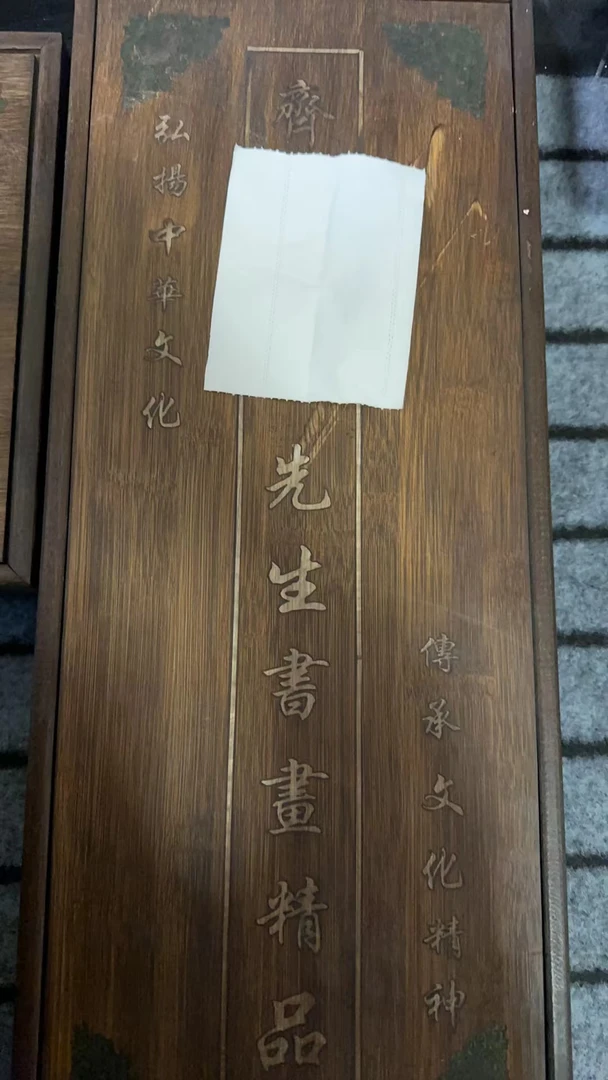 弘揚中華文化
齊
先生書畫精品
傳承文化精神